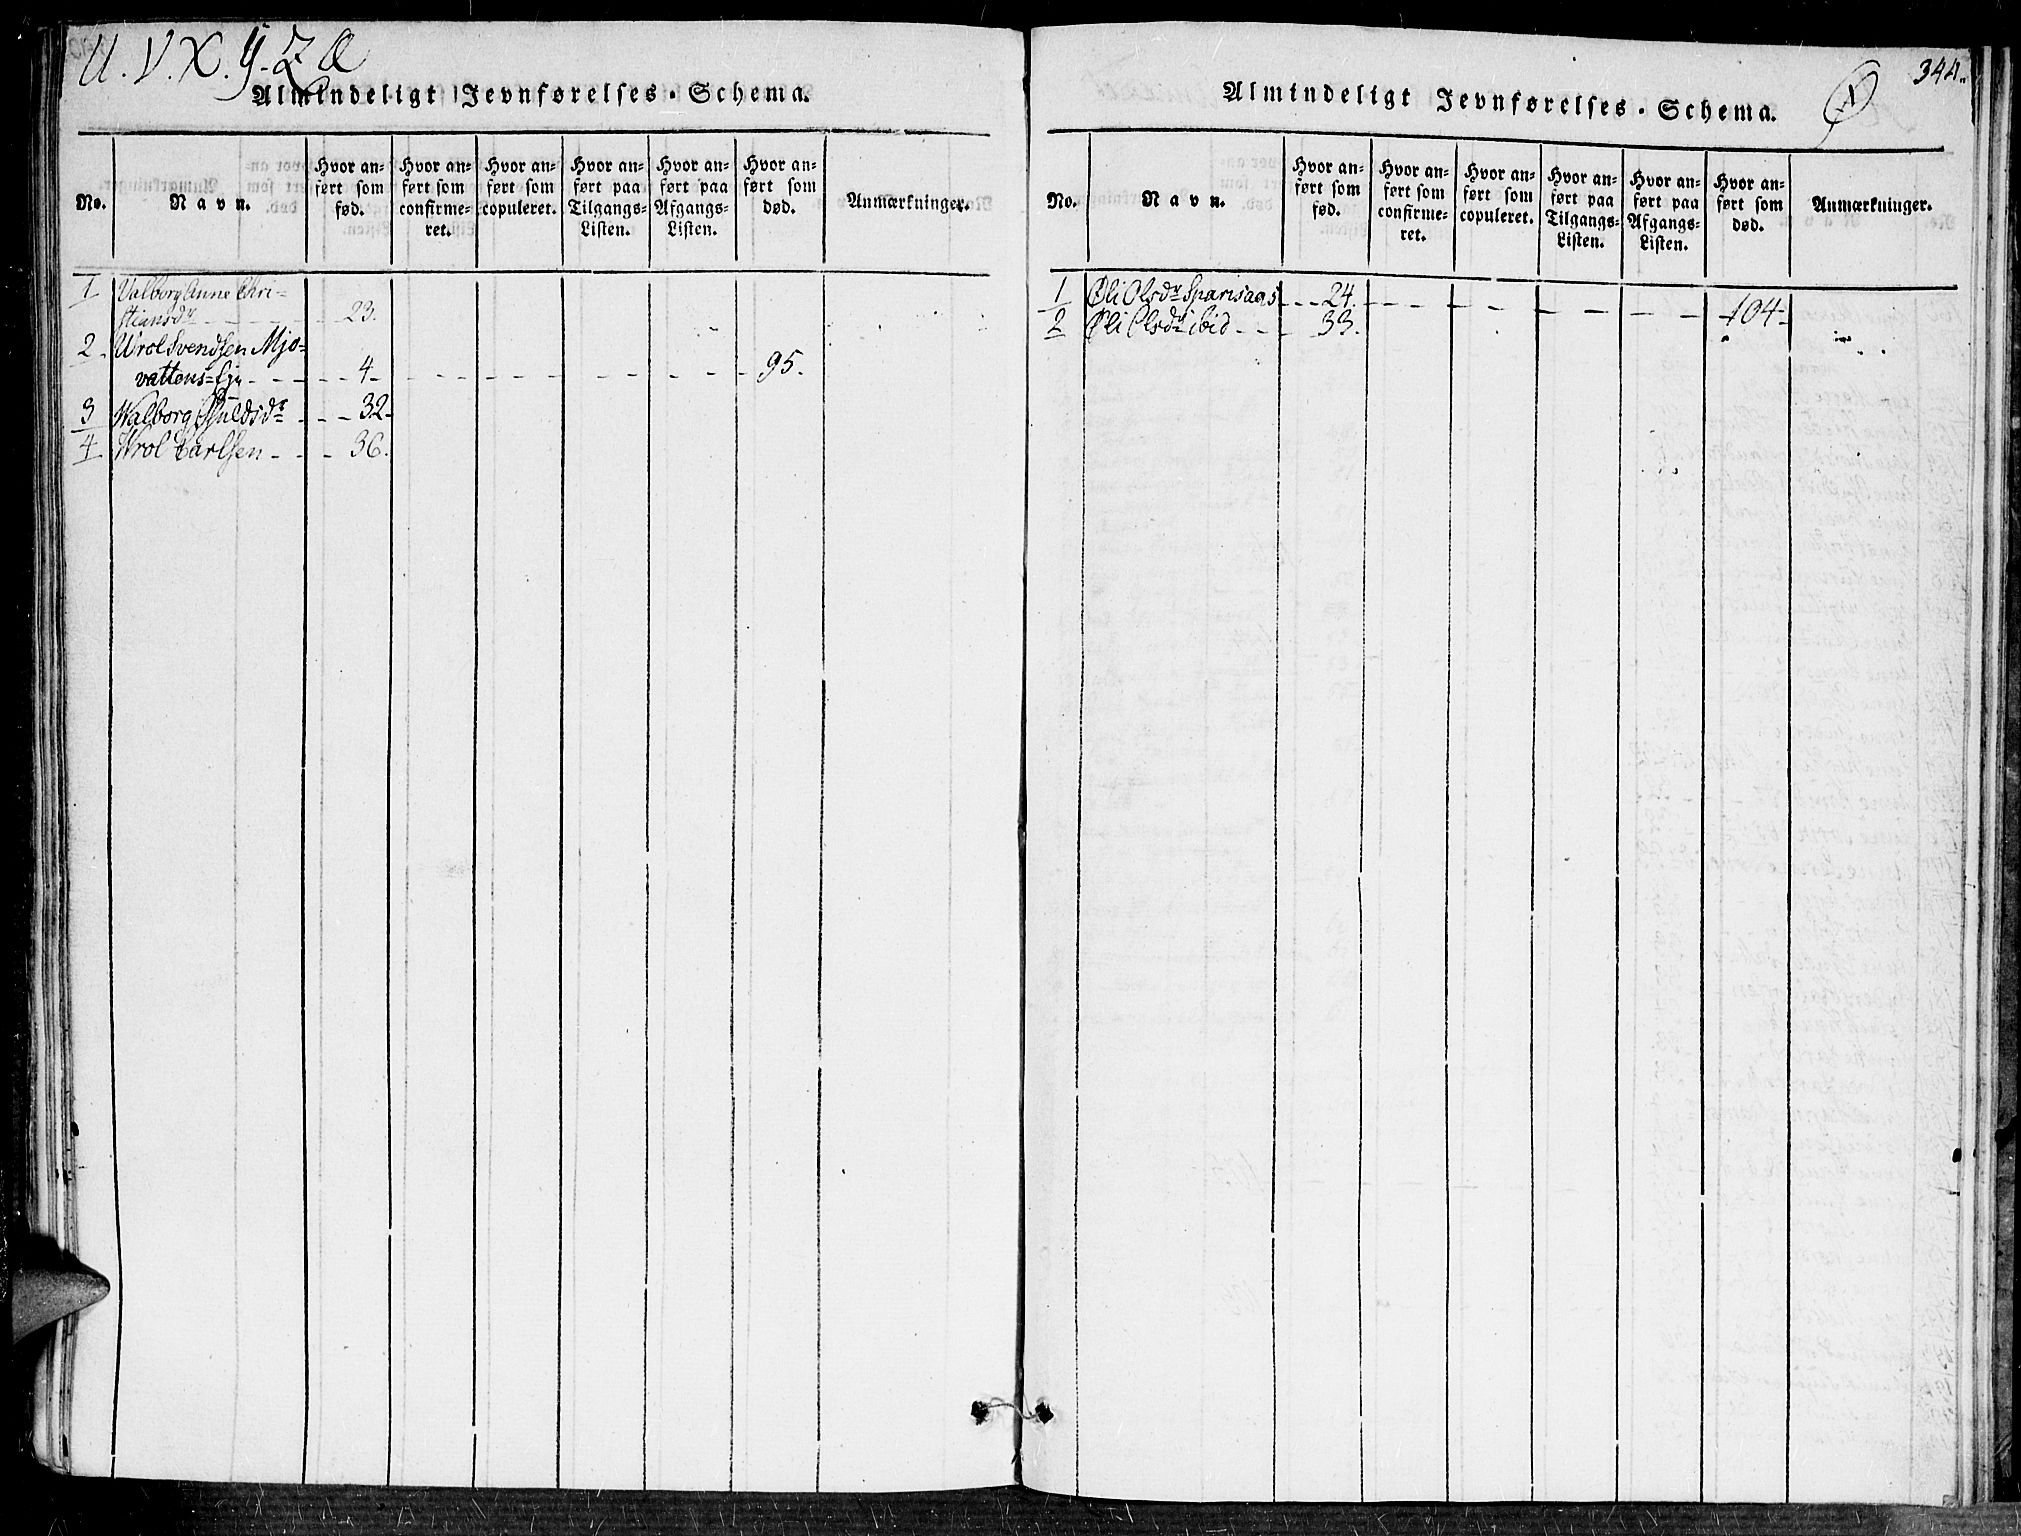 U. V. X. Y. Z Æ
Almindeligt Jevnførelses-Schema.
No.
Navn.
Hvor an-
ført som
fød.
Hvor an-
ført som
confirme-
ret.
Hvor an-
ført som
copuleret.
Hvor an-
ført paa
Tilgangs-
Listen.
Hvor an-
ført paa
Afgangs-
Listen.
Hvor an-
ført som
død.
Anmærkninger.
1 Valborg Anne Chri-
stiansdr 23.
2. Wrol Svendsen Mjo-
vattens 4 95.
3 Walborg 32
4 Wrol Carlsen 36.
344.
Ø
Almindeligt Jevnførelses-Schema.
No.
Navn.
Hvor an-
ført som
fød.
Hvor an-
ført som
confirme-
ret.
Hvor an-
ført som
copuleret.
Hvor an-
ført paa
Tilgangs-
Listen.
Hvor an-
ført paa
Afgangs-
Listen.
Hvor an-
ført som
død.
Anmærkninger.
1 Øli Olsdr 24. 104
2 Øli Olsdr ibid 33.